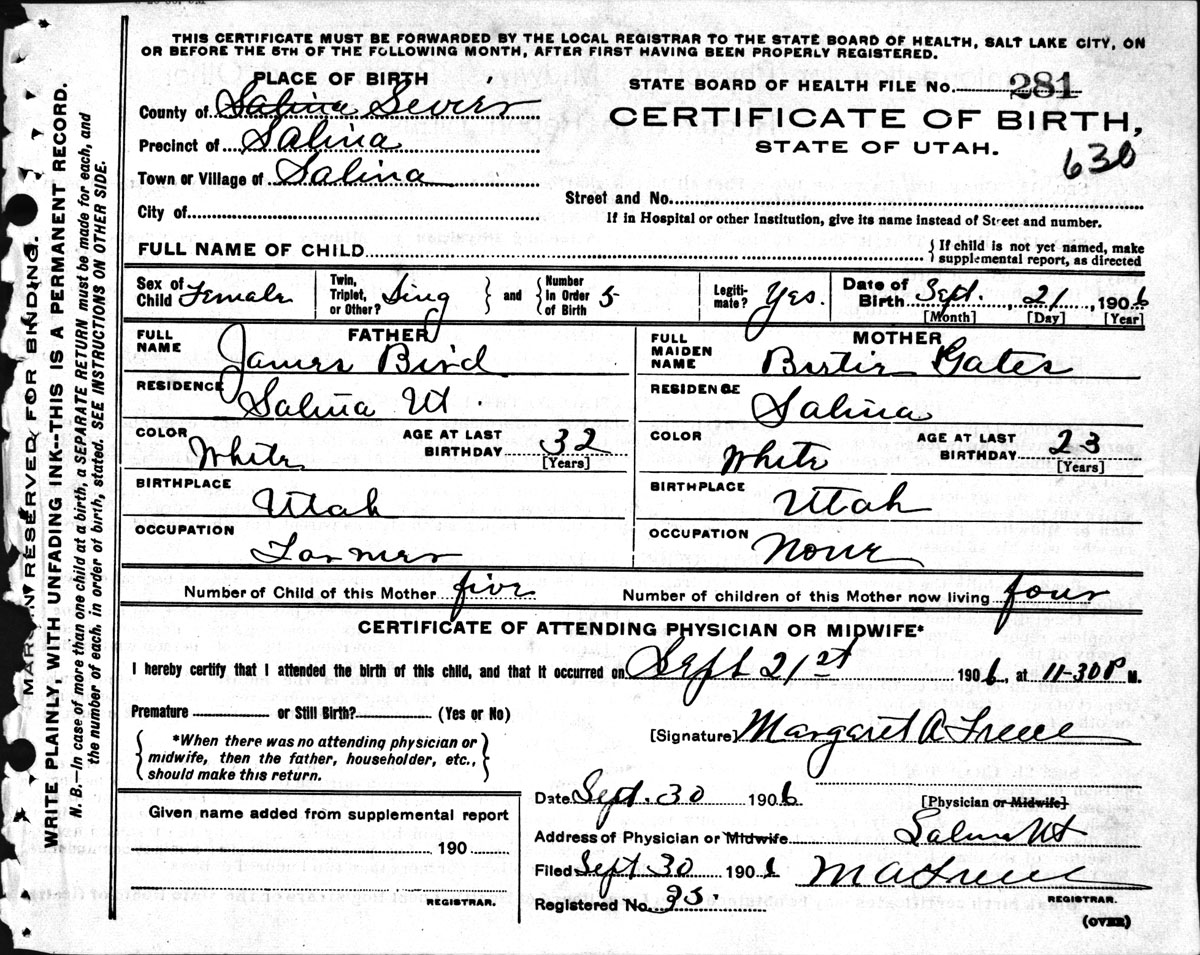 THIS CERTIFICATE MUST BE FORWARDED BY THE LOCAL REGISTRAR TO THE STATE BOARD OF HEALTH, SALT LAKE CITY, ON
OR BEFORE THE 5TH OF THE FOLLOWING MONTH, AFTER FIRST HAVING BEEN PROPERLY REGISTERED.
PLACE OF BIRTH
County of Salina Sevier
Precinct of Salina
Town or Village of Salina
City of
STATE BOARD OF HEALTH FILE No. 281
CERTIFICATE OF BIRTH,
STATE OF UTAH.
630
Street and No.
If in Hospital or other Institution, give its name instead of Street and number.
FULL NAME OF CHILD
{ If child is not yet named, make
supplemental report, as directed
Sex of Child Female
Twin, Triplet, or Other? Sing } and { Number in Order of Birth 5
Legiti-mate? Yes.
Date of Birth Sept. , 21 , 1906
[Month] [Day] [Year]
FATHER
FULL NAME James Bird
RESIDENCE Salina Ut.
COLOR White AGE AT LAST BIRTHDAY 32
[Years]
BIRTHPLACE Utah
OCCUPATION Farmer
MOTHER
FULL MAIDEN NAME Bertie Gates
RESIDENCE Salina
COLOR White AGE AT LAST BIRTHDAY 23
[Years]
BIRTHPLACE Utah
OCCUPATION None
Number of Child of this Mother five Number of children of this Mother now living four
CERTIFICATE OF ATTENDING PHYSICIAN OR MIDWIFE*
I hereby certify that I attended the birth of this child, and that it occurred on Sept 21st 1906, at 11-30 P M.
Premature or Still Birth? (Yes or No)
{ *When there was no attending physician or
midwife, then the father, householder, etc.,
should make this return. }
[Signature] Margaret A Freece
Date Sept. 30 1906 [Physician or Midwife]
Address of Physician or Midwife Salina Ut
Filed Sept 30 1906 M A Freece
REGISTRAR.
Registered No. 95.
(OVER)
Given name added from supplemental report
190
REGISTRAR.
MARGIN RESERVED FOR BINDING.
WRITE PLAINLY WITH UNFADING INK--THIS IS A PERMANENT RECORD.
N. B.—In case of more than one child at birth, a SEPARATE RETURN must be made for each, and
the number of each, in order of birth, stated. SEE INSTRUCTIONS ON OTHER SIDE.